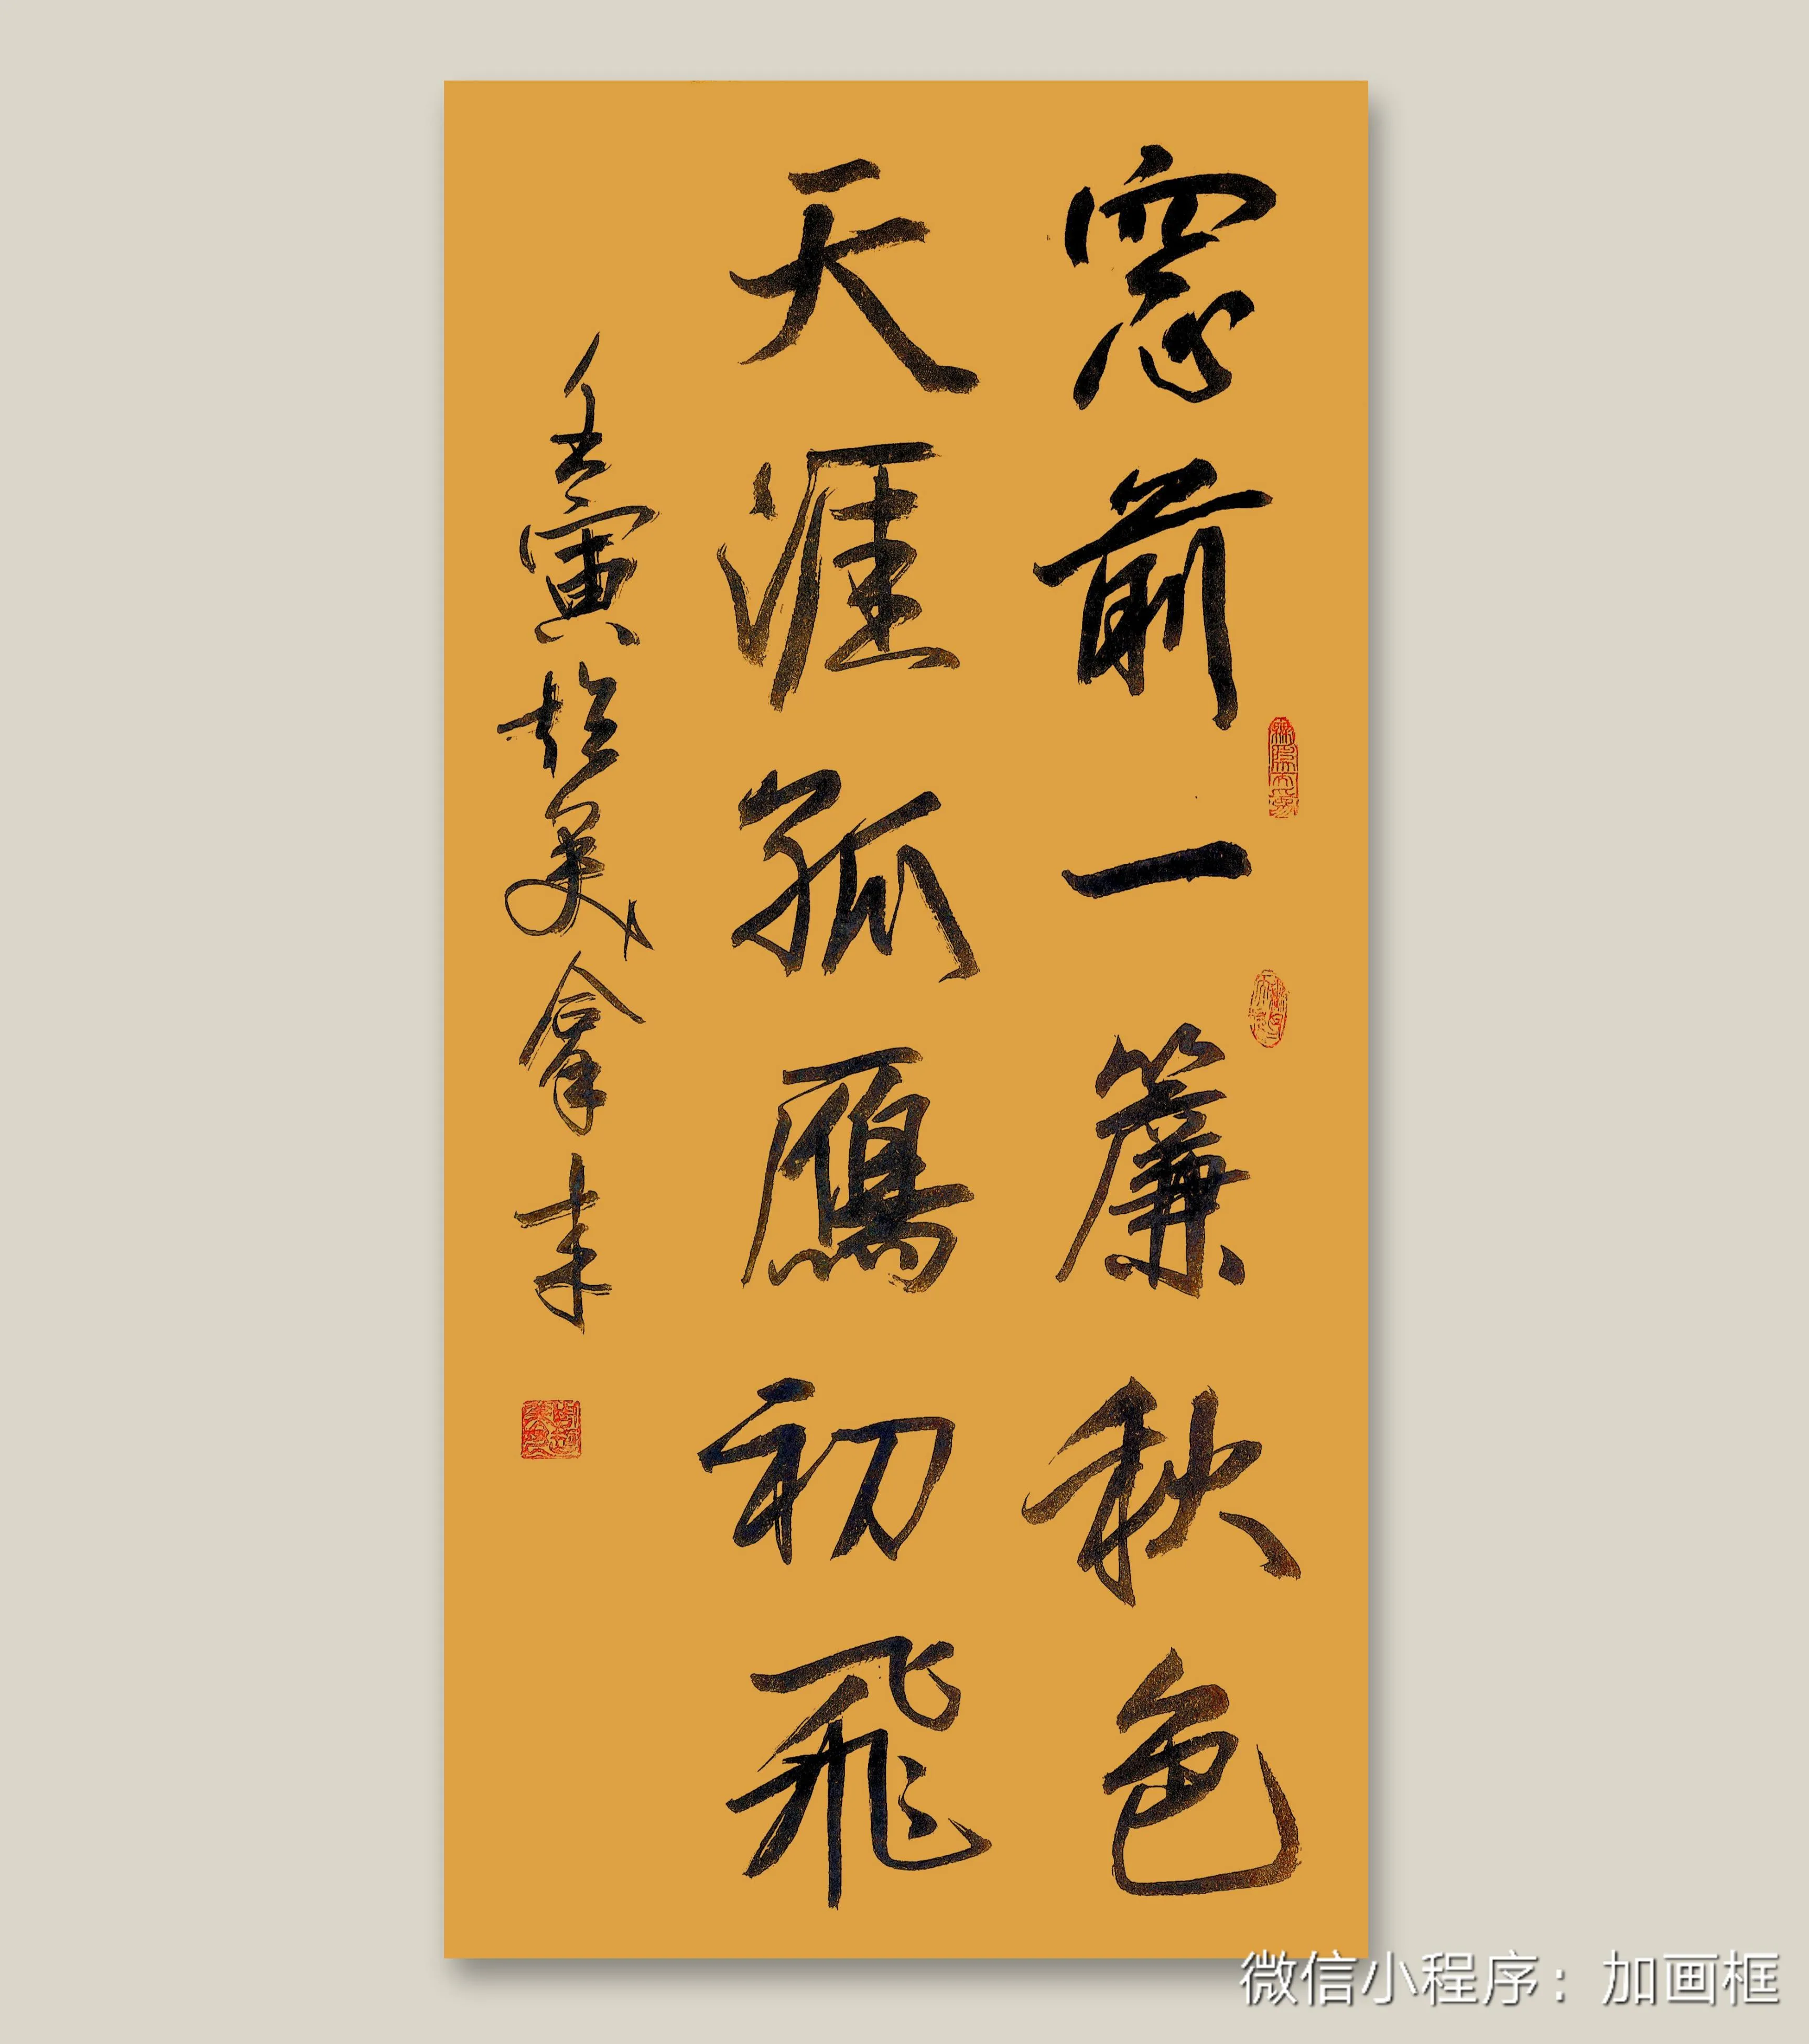 窓前一簾秋色
天涯孤鴈初飛
壬寅 美拿
微信小程序：加画框